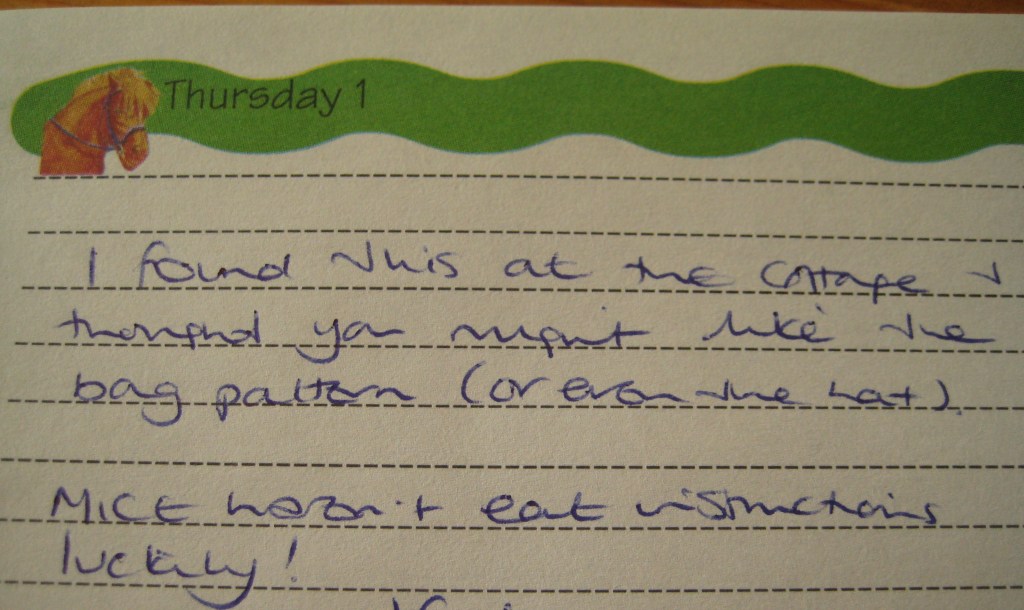 Thursday 1
I found this at the cottage +
thought you might like the
bag pattern (or even the hat).
MICE haven't eat instructions
luckily!